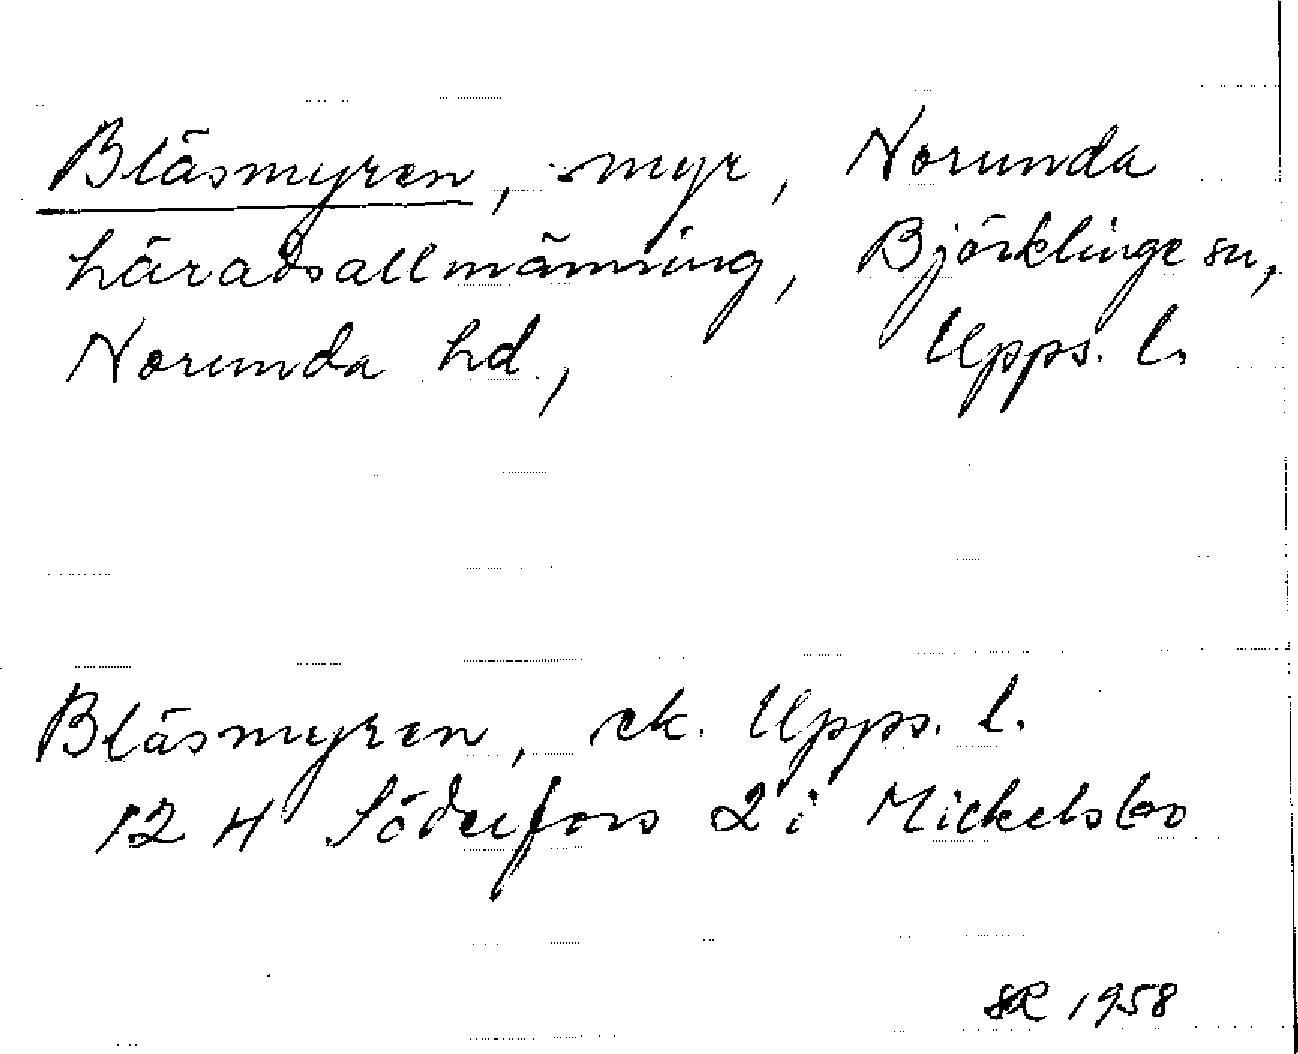 Bläsmyren, myr, Norunda
häradsallmänning, Björklinge sn,
Norunda hd, Upps. l.
Bläsmyren, ek. Upps. l.
12 H Söderfors 2 i Mickelsbo
SR 1958